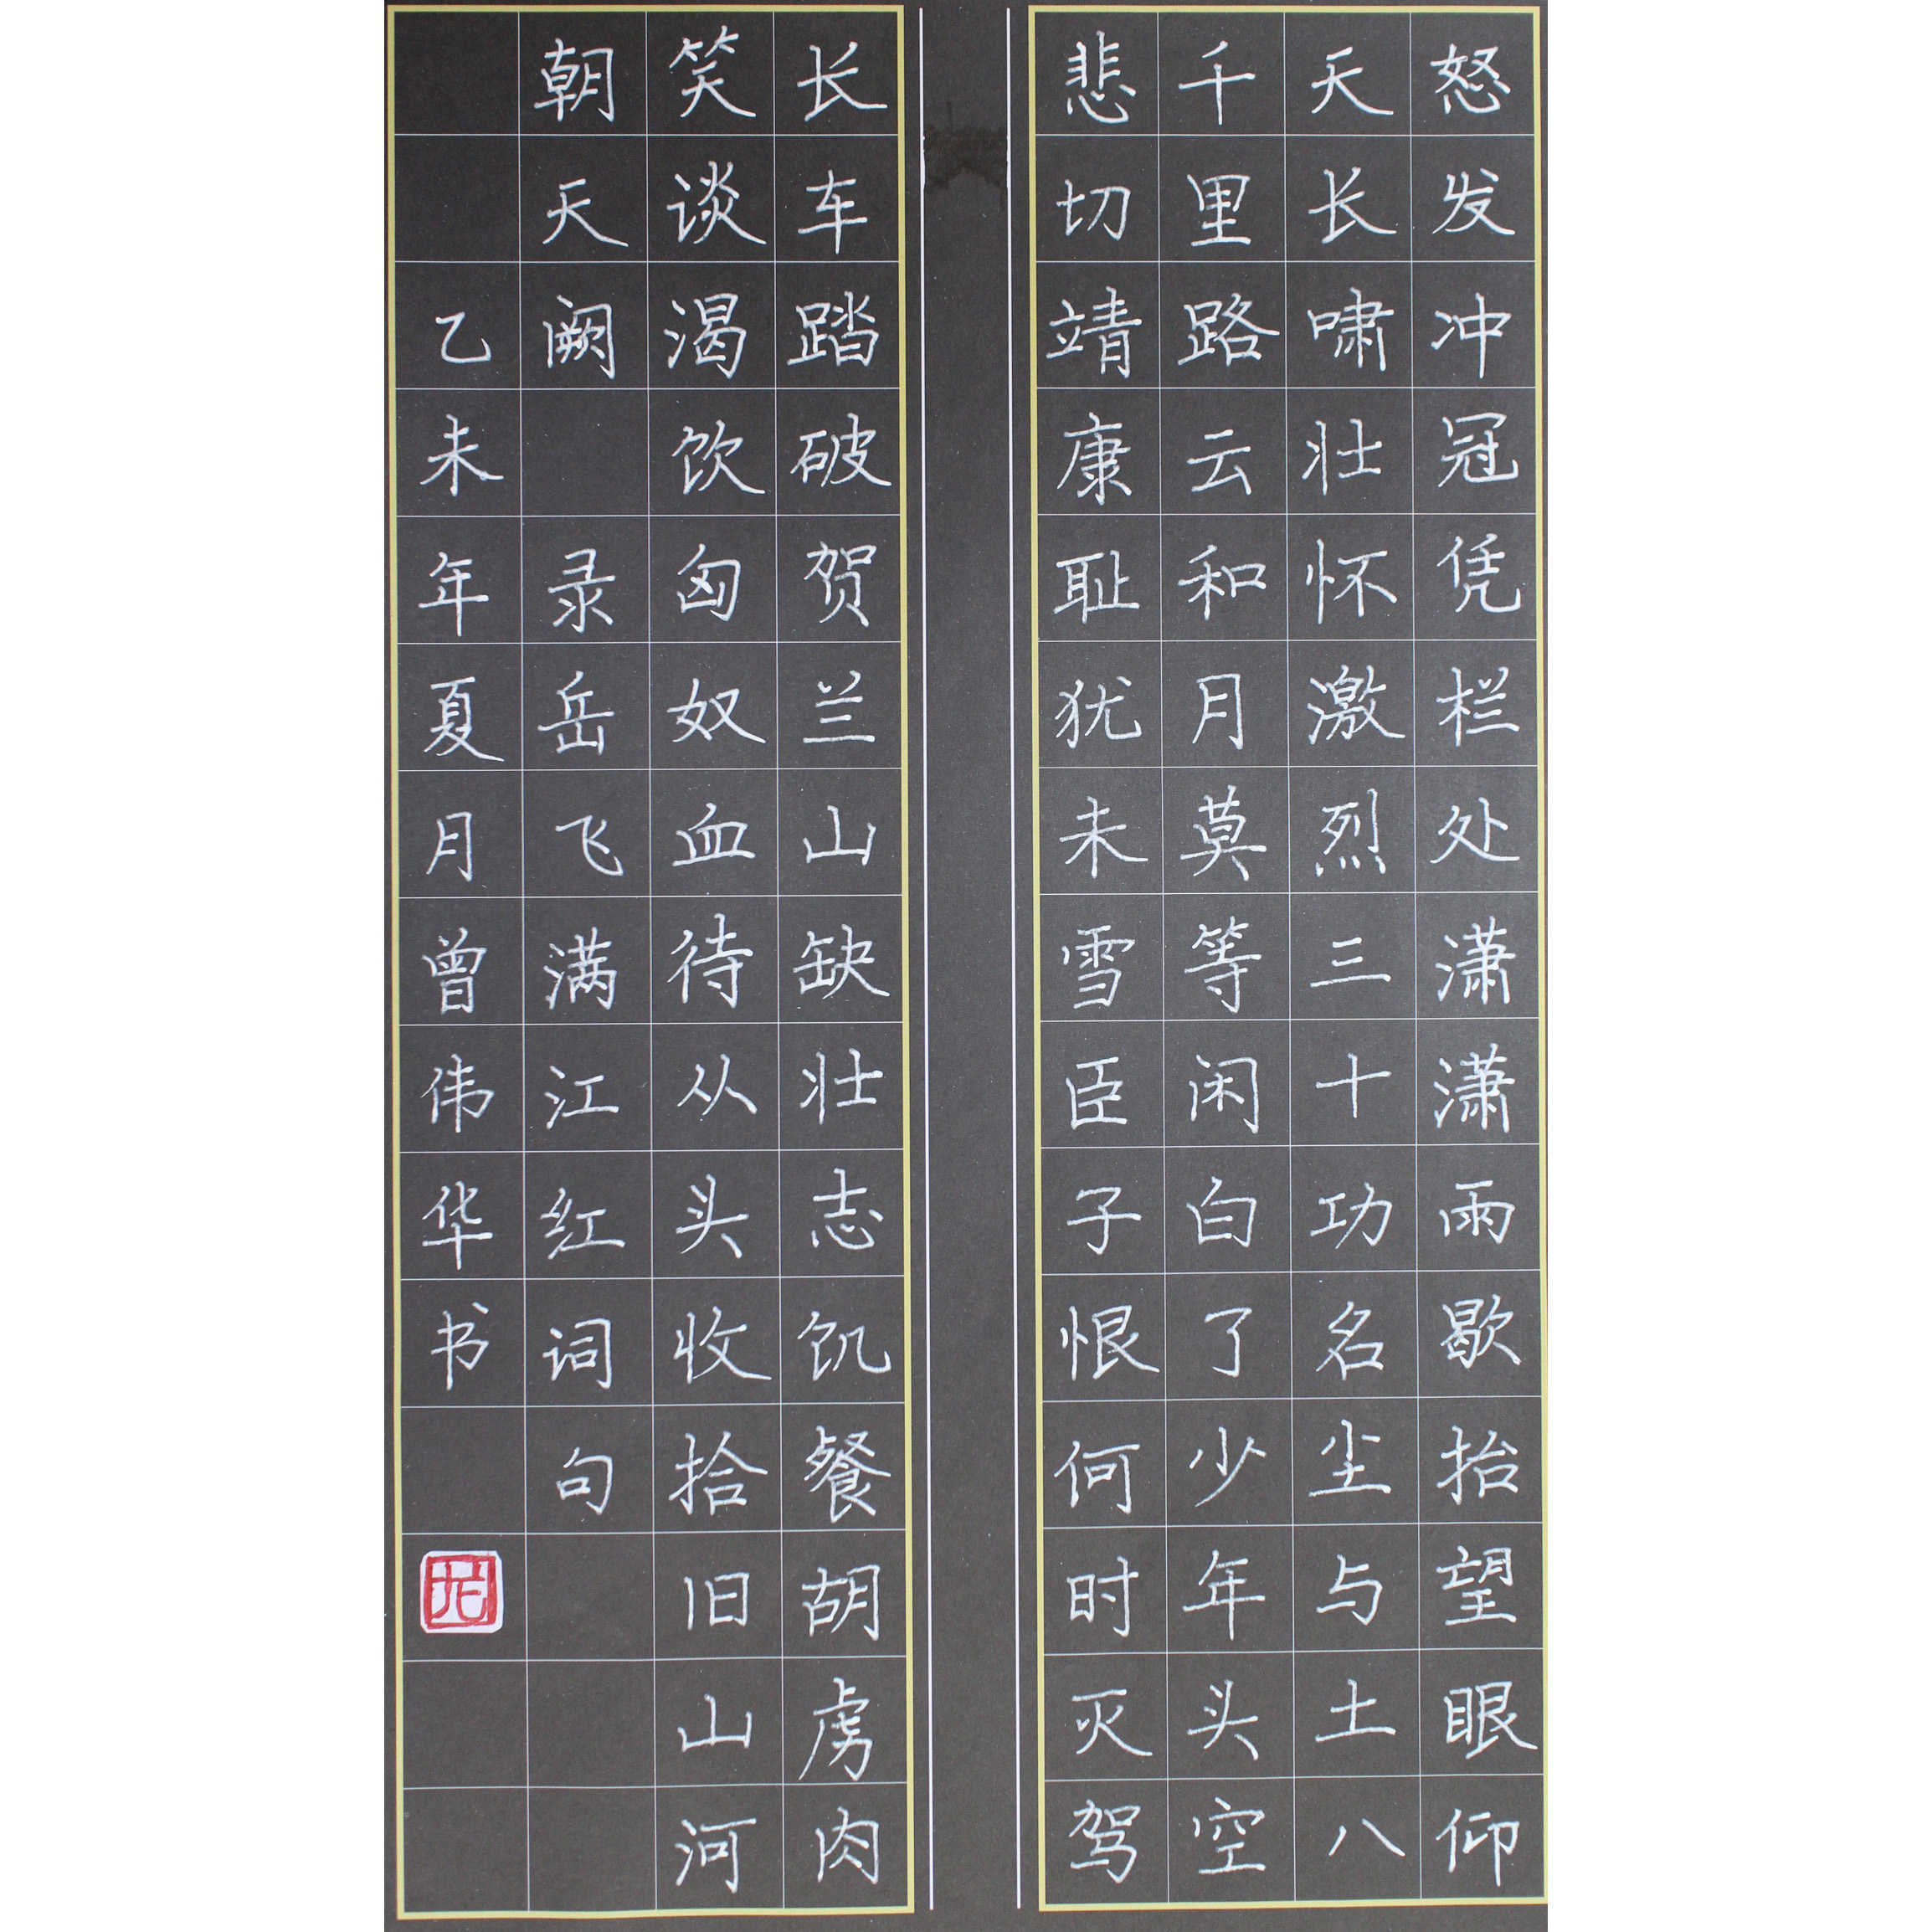 怒发冲冠凭栏处潇潇雨歇抬望眼仰
天长啸壮怀激烈三十功名尘与土八
千里路云和月莫等闲白了少年头空
悲切靖康耻犹未雪臣子恨何时灭驾
长车踏破贺兰山缺壮志饥餐胡虏肉
笑谈渴饮匈奴血待从头收拾旧山河
朝天阙 录岳飞满江红词句
乙未年夏月曾伟华书